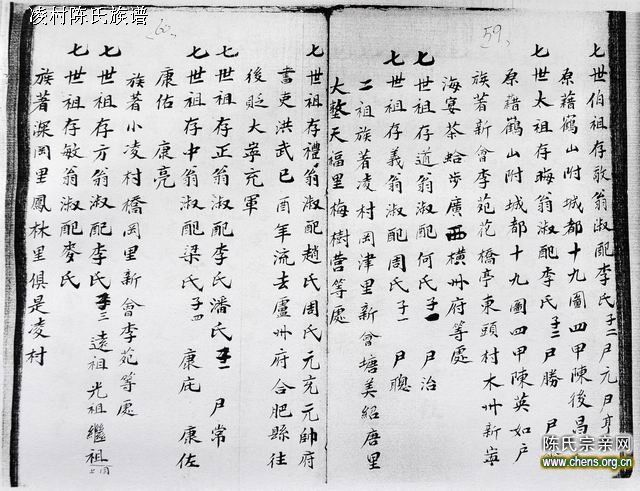 凌村陈氏族谱
59
七世伯祖存歌翁淑配李氏子二尸元尸亨
原藉鶴山附城都十九圖四甲陳後昌
七世太祖存晦翁淑配李氏子二尸勝尸
原藉鶴山附城都十九圖四甲陳英如户
族著新會李苑花橋亭東頭村木州新寧
海宴茶蛤步廣西橫州府等處
七世祖存道翁淑配何氏子一尸治
七世祖存義翁淑配周氏子一尸聰
二祖族著凌村岡津里新會塘美紹唐里
大整天福里梅樹营等處
60
七世祖存禮翁淑配趙氏周氏元充元帥府
書吏洪武己酉年流去盧州府合肥縣往
後貶大寧充軍
七世祖存正翁淑配李氏潘氏子一尸常
七世祖存中翁淑配梁氏子四康庇康佐
康佑康亮
族著小凌村橋岡里新會李苑等處
七世祖存方翁淑配李氏子三遠祖光祖繼祖
七世祖存敏翁淑配麥氏
族著深岡里鳳林里俱是凌村
陈氏宗亲网
www.chens.org.cn